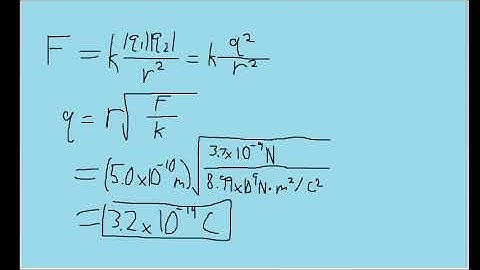 F = k |q₁||q₂| / r² = k q² / r²
q = r √(F / k)
= (5.0×10⁻¹⁰ m) √(3.7×10⁻⁹ N / 8.99×10⁹ N·m²/C²)
= 3.2×10⁻¹⁹ C